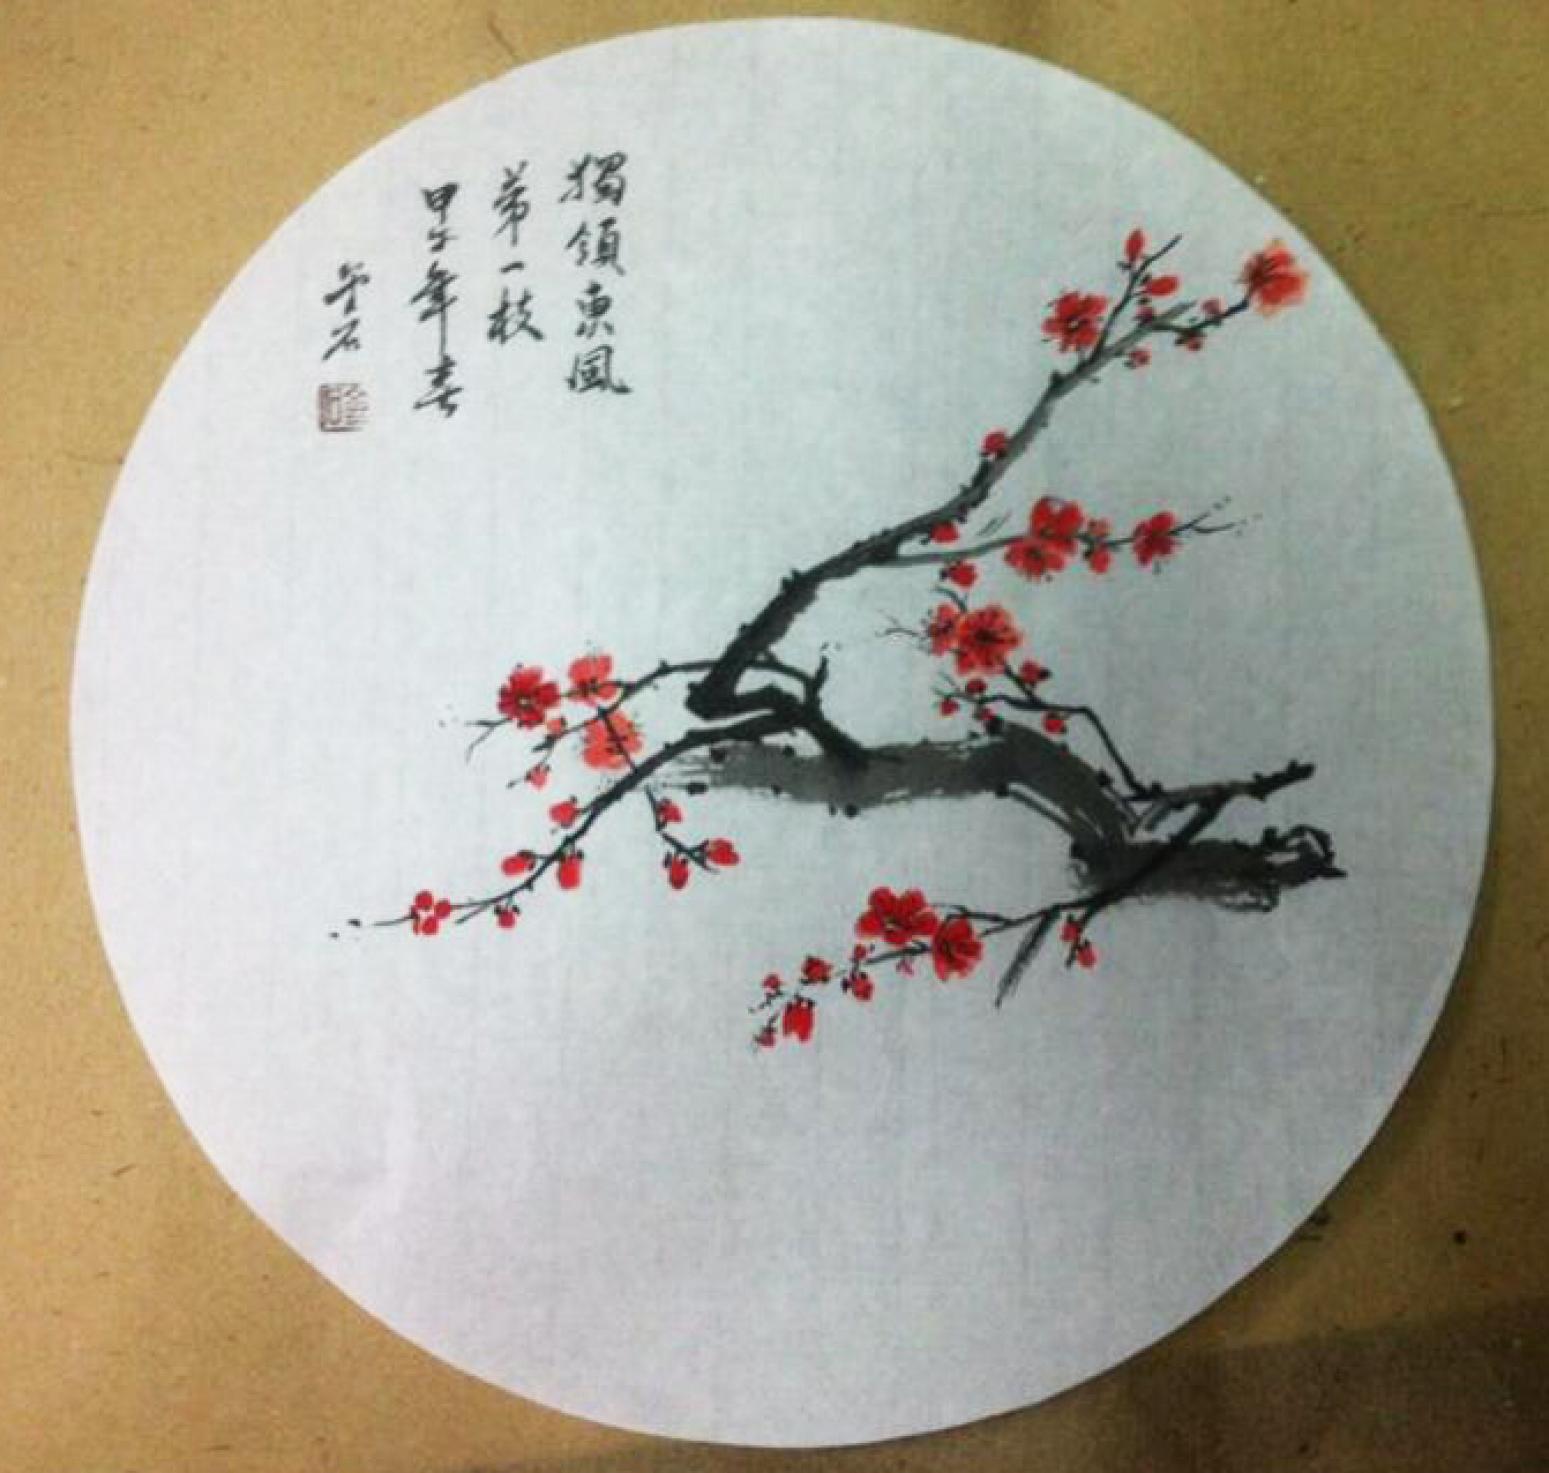 獨領東風
第一枝
甲午年春
石